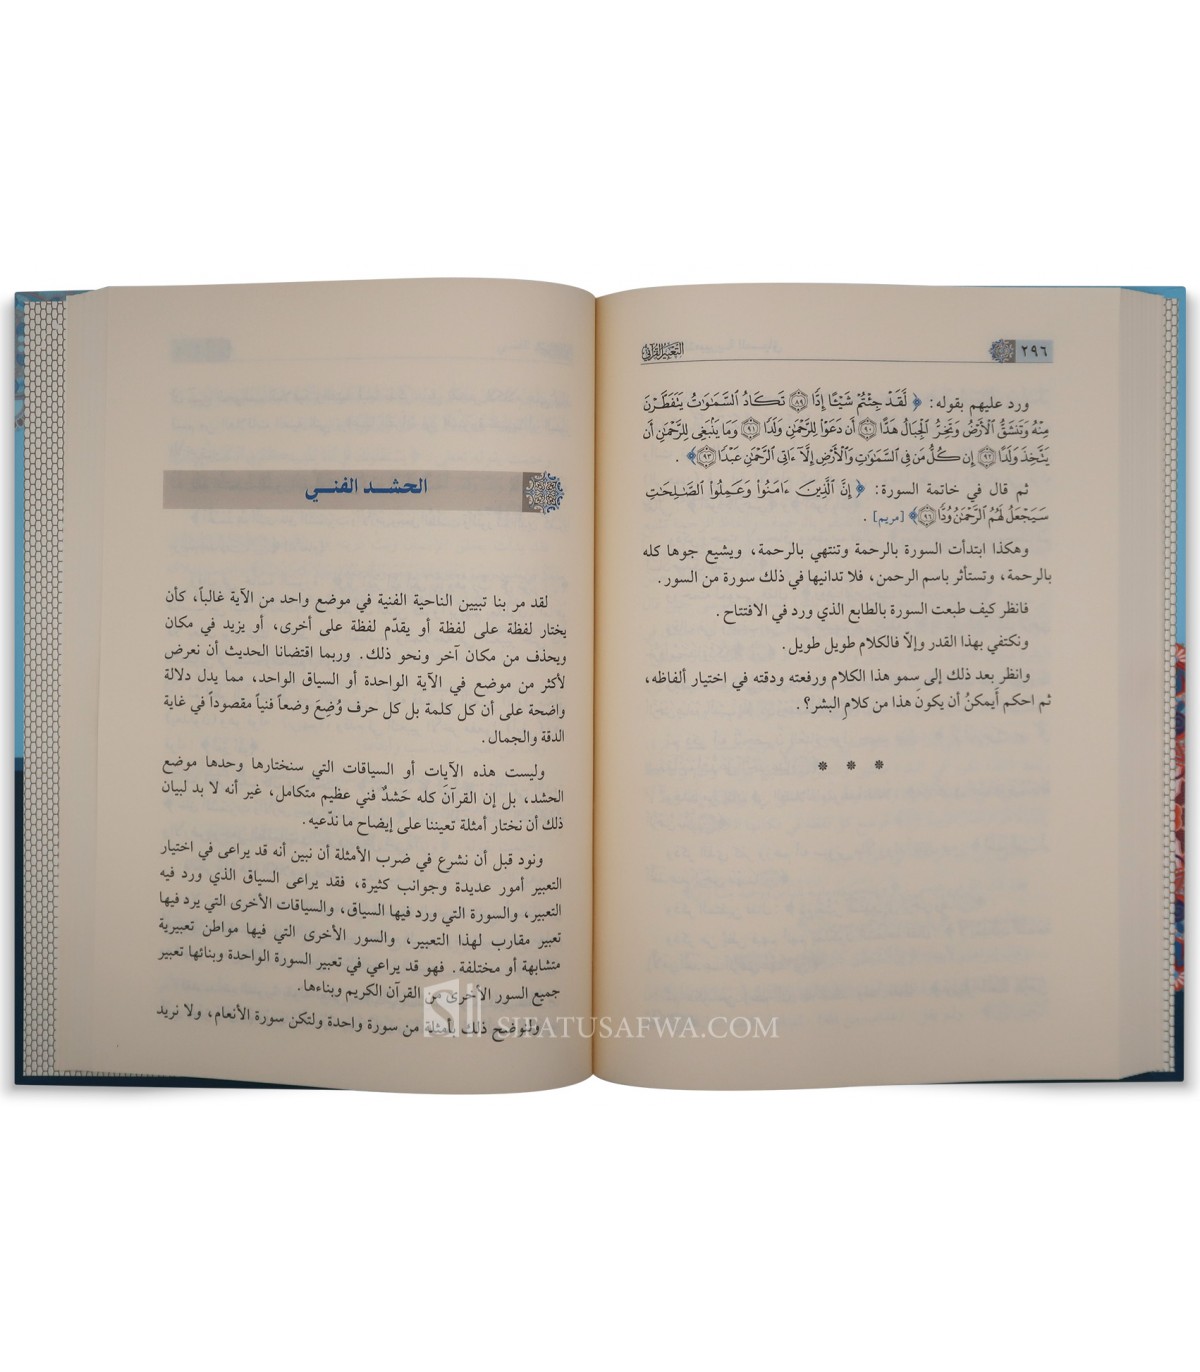 ٢٩٦
التعبير القرآني
ورد عليهم بقوله: ﴿ لَّقَدْ جِئْتُمْ شَيْـًٔا إِدًّا ٨٩ تَكَادُ ٱلسَّمَـٰوَٰتُ يَتَفَطَّرْنَ
مِنْهُ وَتَنشَقُّ ٱلْأَرْضُ وَتَخِرُّ ٱلْجِبَالُ هَدًّا ٩٠ أَن دَعَوْا۟ لِلرَّحْمَـٰنِ وَلَدًا ٩١ وَمَا يَنۢبَغِى لِلرَّحْمَـٰنِ أَن
يَتَّخِذَ وَلَدًا ٩٢ إِن كُلُّ مَن فِى ٱلسَّمَـٰوَٰتِ وَٱلْأَرْضِ إِلَّآ ءَاتِى ٱلرَّحْمَـٰنِ عَبْدًا ٩٣ ﴾ .
ثم قال في خاتمة السورة: ﴿ إِنَّ ٱلَّذِينَ ءَامَنُوا۟ وَعَمِلُوا۟ ٱلصَّـٰلِحَـٰتِ
سَيَجْعَلُ لَهُمُ ٱلرَّحْمَـٰنُ وُدًّا ٩٦ ﴾ [مريم] .
وهكذا ابتدأت السورة بالرحمة وتنتهي بالرحمة، ويشيع جوها كله
بالرحمة، وتستأثر باسم الرحمن، فلا تدانيها في ذلك سورة من السور .
فانظر كيف طبعت السورة بالطابع الذي ورد في الافتتاح .
ونكتفي بهذا القدر وإلاّ فالكلام طويل طويل .
وانظر بعد ذلك إلى سمو هذا الكلام ورفعته ودقته في اختيار ألفاظه،
ثم احكم أَيمكنُ أن يكونَ هذا من كلامِ البشر؟ .
* * *
الحشد الفني
لقد مر بنا تبيين الناحية الفنية في موضع واحد من الآية غالباً، كأن
يختار لفظة على لفظة أو يقدّم لفظة على أخرى، أو يزيد في مكان
ويحذف من مكان آخر ونحو ذلك. وربما اقتضانا الحديث أن نعرض
لأكثر من موضع في الآية الواحدة أو السياق الواحد، مما يدل دلالة
واضحة على أن كل كلمة بل كل حرف وُضِعَ وضعاً فنياً مقصوداً في غاية
الدقة والجمال .
وليست هذه الآيات أو السياقات التي سنختارها وحدها موضع
الحشد، بل إن القرآنَ كله حَشدٌ فني عظيم متكامل، غير أنه لا بد لبيان
ذلك أن نختار أمثلة تعيننا على إيضاح ما ندّعيه .
ونود قبل أن نشرع في ضرب الأمثلة أن نبين أنه قد يراعى في اختيار
التعبير أمور عديدة وجوانب كثيرة، فقد يراعى السياق الذي ورد فيه
التعبير، والسورة التي ورد فيها السياق، والسياقات الأخرى التي يرد فيها
تعبير مقارب لهذا التعبير، والسور الأخرى التي فيها مواطن تعبيرية
متشابهة أو مختلفة. فهو قد يراعي في تعبير السورة الواحدة وبنائها تعبير
جميع السور الأخرى من القرآن الكريم وبناءها.
ولنوضح ذلك بأمثلة من سورة واحدة ولتكن سورة الأنعام، ولا نريد
SIFATUSAFWA.COM